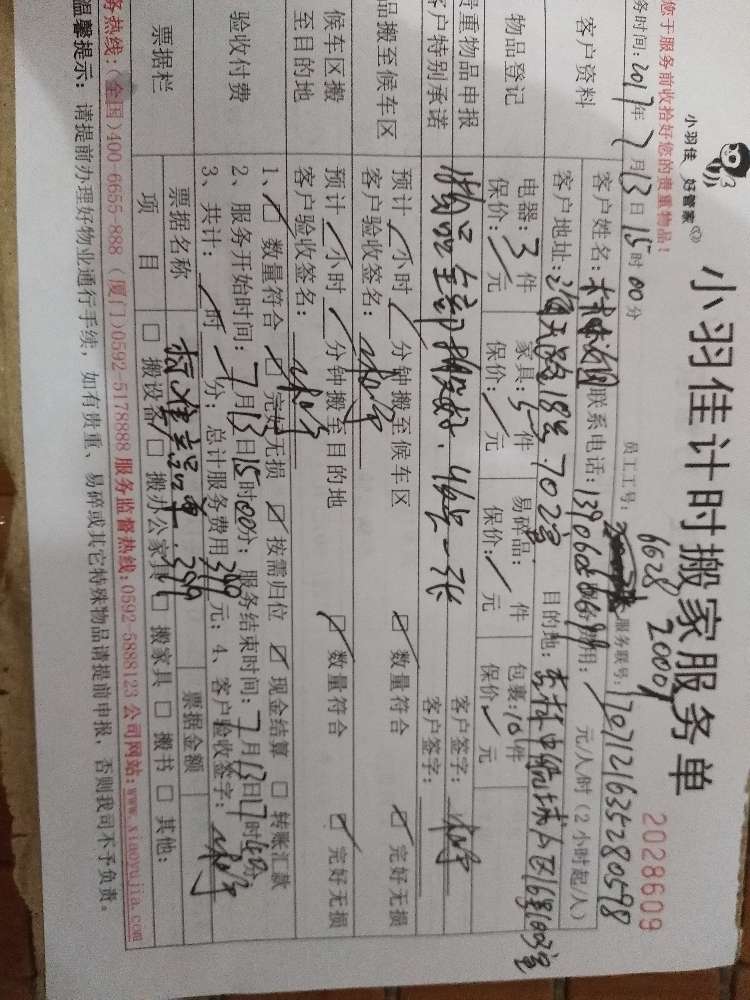 小羽佳 好管家
小羽佳计时搬家服务单
2028609
您于服务前收拾好您的贵重物品!
员工工号: 6628 2000
务时间: 2017年7月13日15时00分
服务联号: 1707121635280598
客户资料
客户姓名: 联系电话: 费用: 元/人/时(2小时起/人)
客户地址: 海天路18号702室 目的地:
物品登记
电器: 3件 家具: 5件 易碎品: 件 包裹: 10件
保价: 元 保价: 元 保价: 元 保价: 元
贵重物品申报
客户签字:
客户特别承诺
物品全部
客户签字:
品搬至候车区
预计 小时 分钟搬至候车区 ☑ 数量符合 ☑ 完好无损
客户验收签名:
候车区搬至目的地
预计 小时 分钟搬至目的地 ☑ 数量符合 ☑ 完好无损
客户验收签名:
验收付费
1、☑ 数量符合 ☑ 完好无损 ☑ 按需归位 ☑ 现金结算 ☐ 转账汇款
2、服务开始时间: 7月13日15时00分; 服务结束时间: 7月13日17时 分
3、共计: 时 分; 总计服务费用 399 元; 4、客户验收签字:
票据栏
票据名称 399 票据金额
项目 ☐ 搬设备 ☑ 搬办公家具 ☐ 搬家具 ☐ 搬书 ☐ 其他:
务热线: (全国)400-6655-888 (厦门)0592-5178888 服务监督热线: 0592-5888123 公司网站: www.xiaoyujia.com
温馨提示: 请提前办理好物业通行手续, 如有贵重、易碎或其它特殊物品请提前申报, 否则我司不予负责。